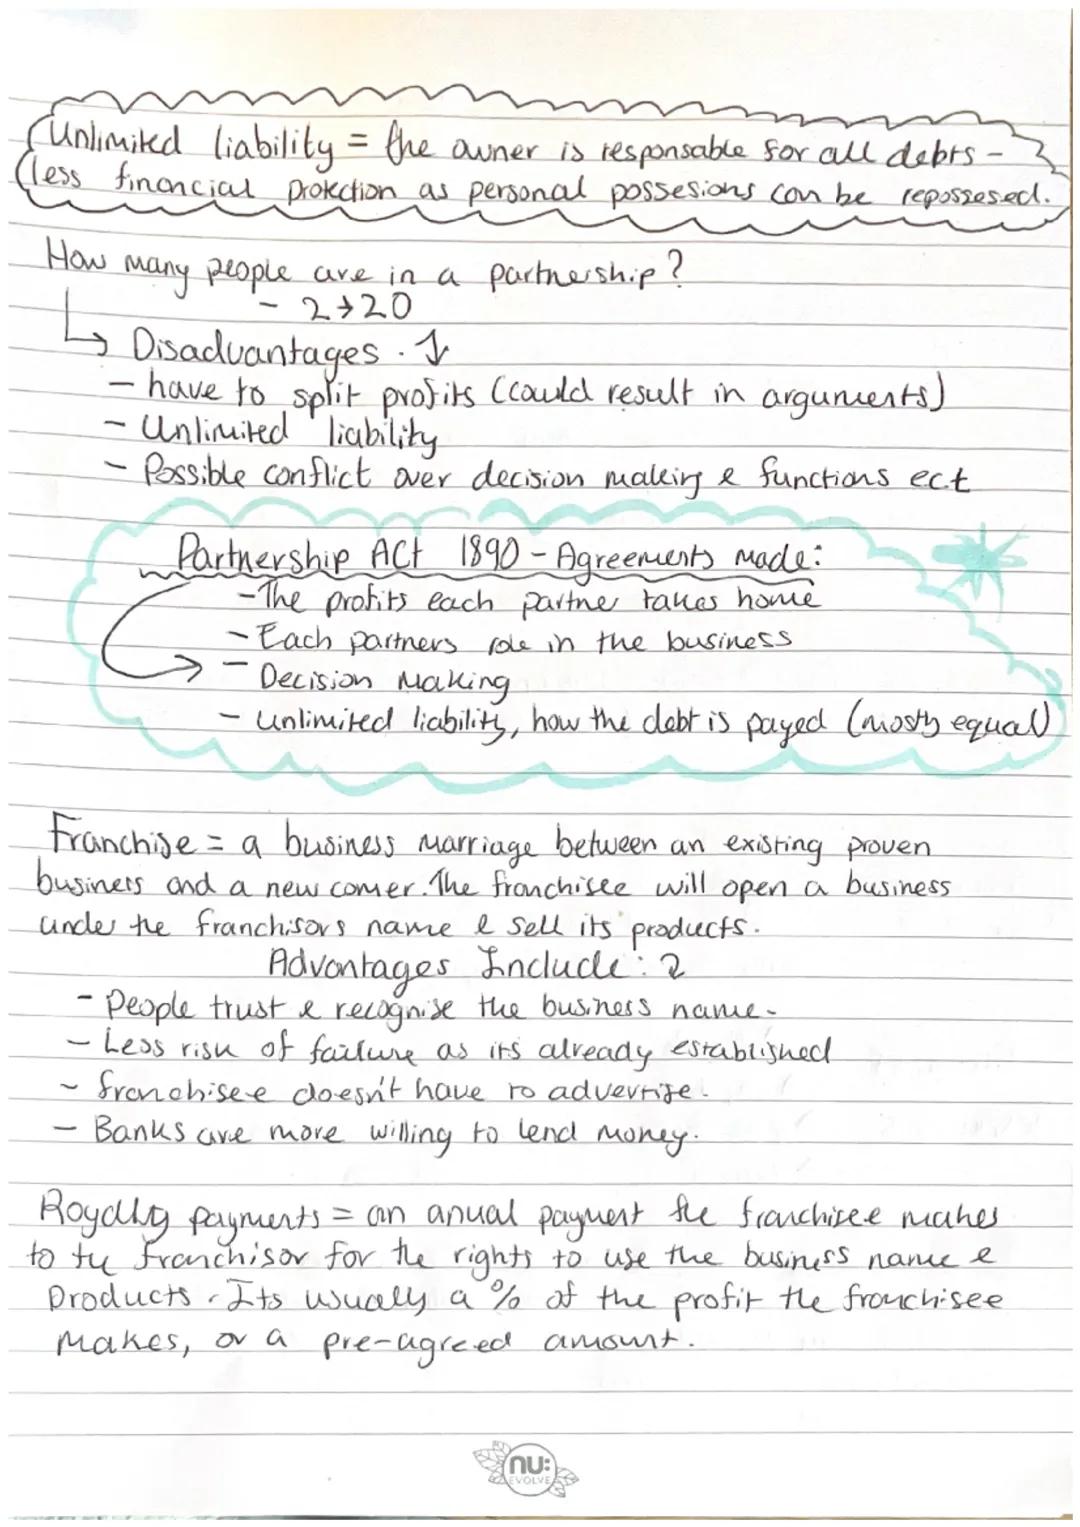 Unlimited liability = the owner is responsable for all debts -
less financial protection as personal possesions can be repossesed.
How many people are in a partnership?
- 2→20
↳ Disadvantages. ↓
- have to split profits (could result in arguments)
- Unlimited liability
- Possible conflict over decision making & functions ect
Partnership Act 1890 - Agreements made:
- The profits each partner takes home
- Each partners role in the business
- Decision Making
- Unlimited liability, how the debt is payed (mostly equal)
Franchise = a business marriage between an existing proven
business and a new comer. The franchisee will open a business
under the franchisors name & sell its products.
Advantages Include:
- People trust & recognise the business name.
- Less risk of failure as its already established
- franchisee doesn't have to advertise.
- Banks are more willing to lend money.
Royalty payments = an anual payment the franchisee makes
to the franchisor for the rights to use the business name &
products. Its usually a % of the profit the franchisee
makes, or a pre-agreed amount.
nu:
EVOLVE